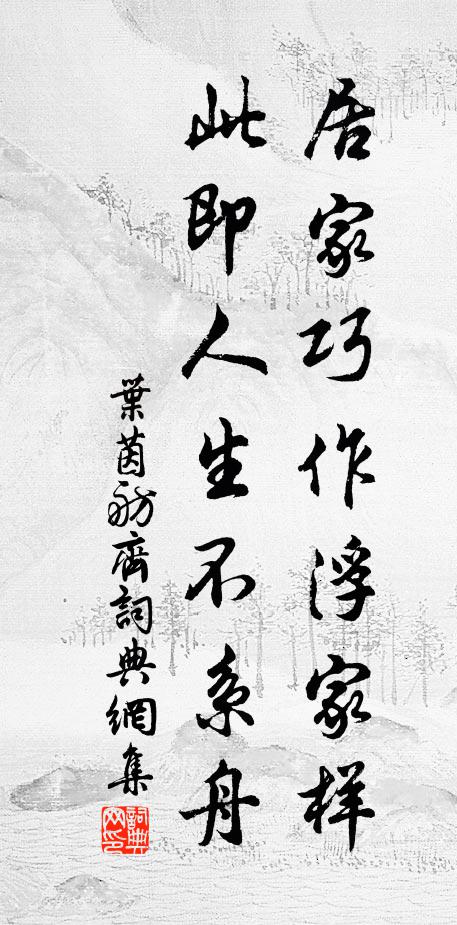 居家巧作浮家样
此即人生不系舟
葉茵舫齊詞典網集
詞典网印